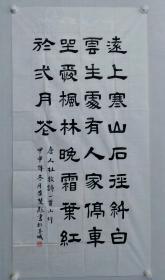 遠上寒山石徑斜白
雲生處有人家停車
坐愛楓林晚霜葉紅
於弍月花
唐人杜牧詩一首山行
甲申年冬月書於羊城